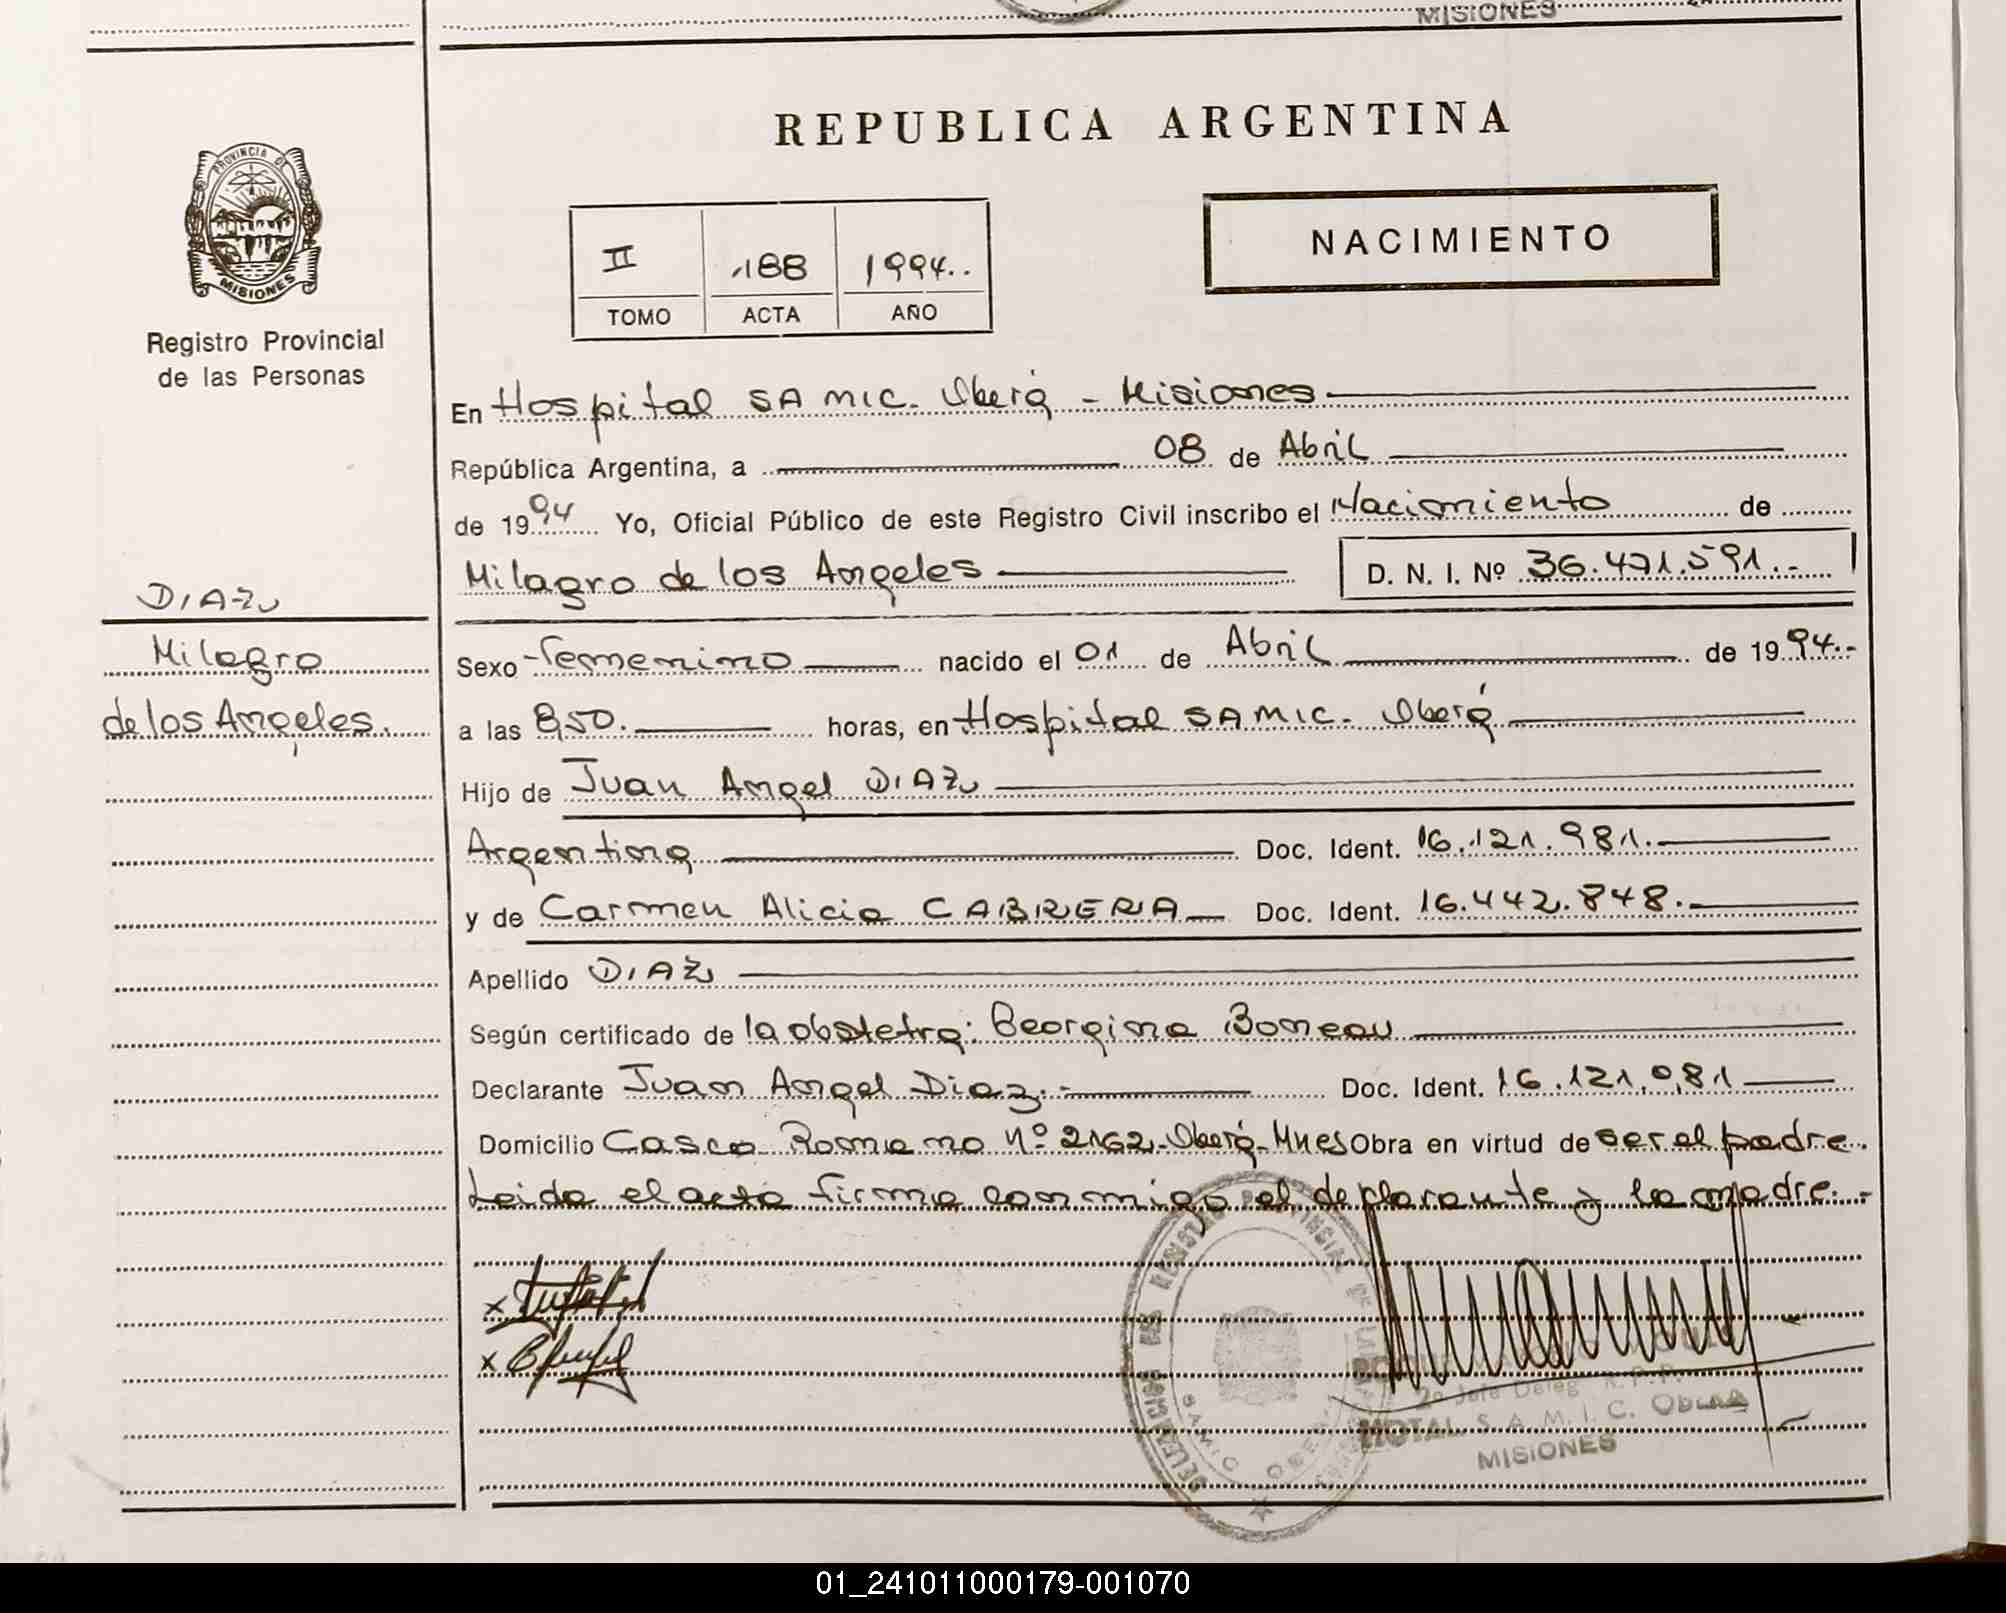 MISIONES
REPUBLICA ARGENTINA
PROVINCIA DE
MISIONES
Registro Provincial
de las Personas
II
188
1994..
TOMO
ACTA
AÑO
NACIMIENTO
En Hospital SAMIC. Oberá - Misiones
República Argentina, a 08 de Abril
de 1994 Yo, Oficial Público de este Registro Civil inscribo el Nacimiento de
Milagro de los Angeles D. N. I. Nº 36.471.591.-
DIAZ
Milagro
de los Angeles.
Sexo femenino nacido el 01 de Abril de 1994.-
a las 8,50. horas, en Hospital SAMIC. Oberá
Hijo de Juan Angel DIAZ
Argentina Doc. Ident. 16.121.981.
y de Carmen Alicia CABRERA Doc. Ident. 16.442.848.
Apellido DIAZ
Según certificado de la obstetra: Georgina Boneau
Declarante Juan Angel Diaz.- Doc. Ident. 16.121.081
Domicilio Casco Romano Nº 2162-Oberá-Mnes Obra en virtud de ser el padre.
Leida el acta firma conmigo el declarante y la madre.-
REGISTRO PROVINCIAL DE LAS
SAMIC OBERA
2º Jefe Deleg. R.P.P.
HOTAL S.A.M.I.C. Oberá
MISIONES
01_241011000179-001070